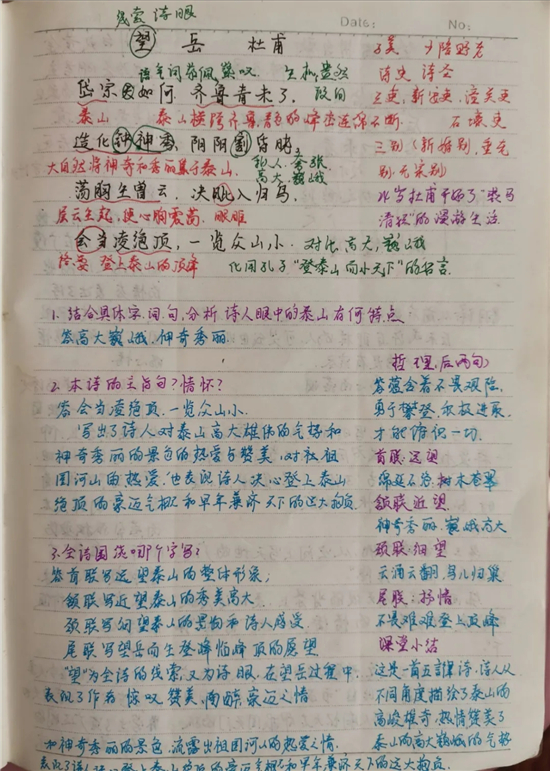 线索 诗眼
Date: No:
望 岳 杜甫
子美 少陵野老
语气词 敬佩 惊叹 生机盎然
诗史 诗圣
岱宗夫如何，齐鲁青未了。 设问
三吏，新安吏，潼关吏
泰山 泰山横跨齐鲁，青色的峰峦连绵不断．
石壕吏
造化钟神秀，阴阳割昏晓．
三别（新婚别，垂老
大自然将神奇和秀丽集于泰山． 拟人 夸张
别，无家别）
高大巍峨
荡胸生曾云，决眦入归鸟，
层云生起，使心胸震荡．眼眶
清狂"的漫游生活
会当凌绝顶，一览众山小．对比，高大，巍峨
终要 登上泰山的顶峰 化用孔子"登泰山而小天下"的名言．
1. 结合具体字，词，句，分析诗人眼中的泰山有何特点
答高大巍峨，神奇秀丽．
哲理，后两句）
2. 本诗的主旨句？情怀？
答蕴含着不畏艰险，
答 会当凌绝顶，一览众山小．
勇于攀登，积极进取，
写出了诗人对泰山高大雄伟的气势和
才能俯视一切．
神奇秀丽的景色的热爱与赞美，对祖
首联：远望
国河山的热爱，也表现诗人决心登上泰山
绵延不绝，树木苍翠
绝顶的豪迈气概和早年兼济天下的远大抱负．
颔联 近望
神奇秀丽，巍峨高大
3. 全诗围绕哪个字写？
颈联：细望
答 首联写远望泰山的整体形象；
云涌云翻，鸟儿归巢
颔联写近望泰山的秀美高大．
尾联：抒情
颈联写细望泰山的景物和诗人感受
不畏难难登上顶峰
尾联写望岳而生登峰 顶的愿望
课堂小结
"望"为全诗的线索，又为诗眼，在望岳过程中，
这是一首五言律诗，诗人从
表现了作者惊叹 赞美， 豪迈之情
不同角度描绘了泰山的
高峻雄奇，热情赞美了
和神奇秀丽的景色，流露出祖国河山的热爱之情．
泰山的高大巍峨的气势
表现了诗人 登上泰山 的豪迈气概和早年兼济天下的远大抱负．